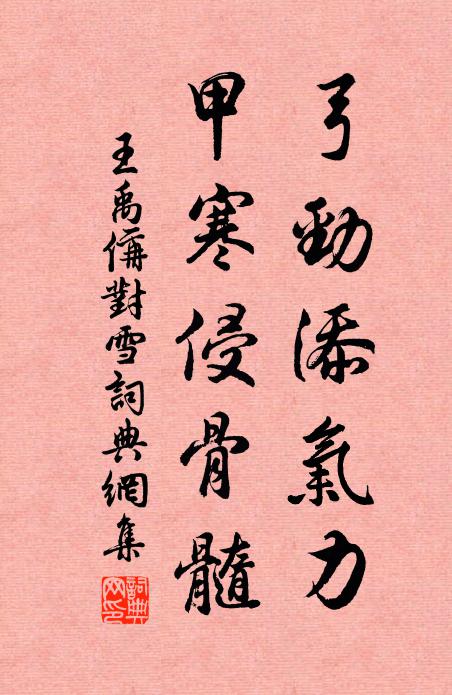 弓勁添氣力
甲寒侵骨髓
王禹偁對雪詞典網集
詞典網印